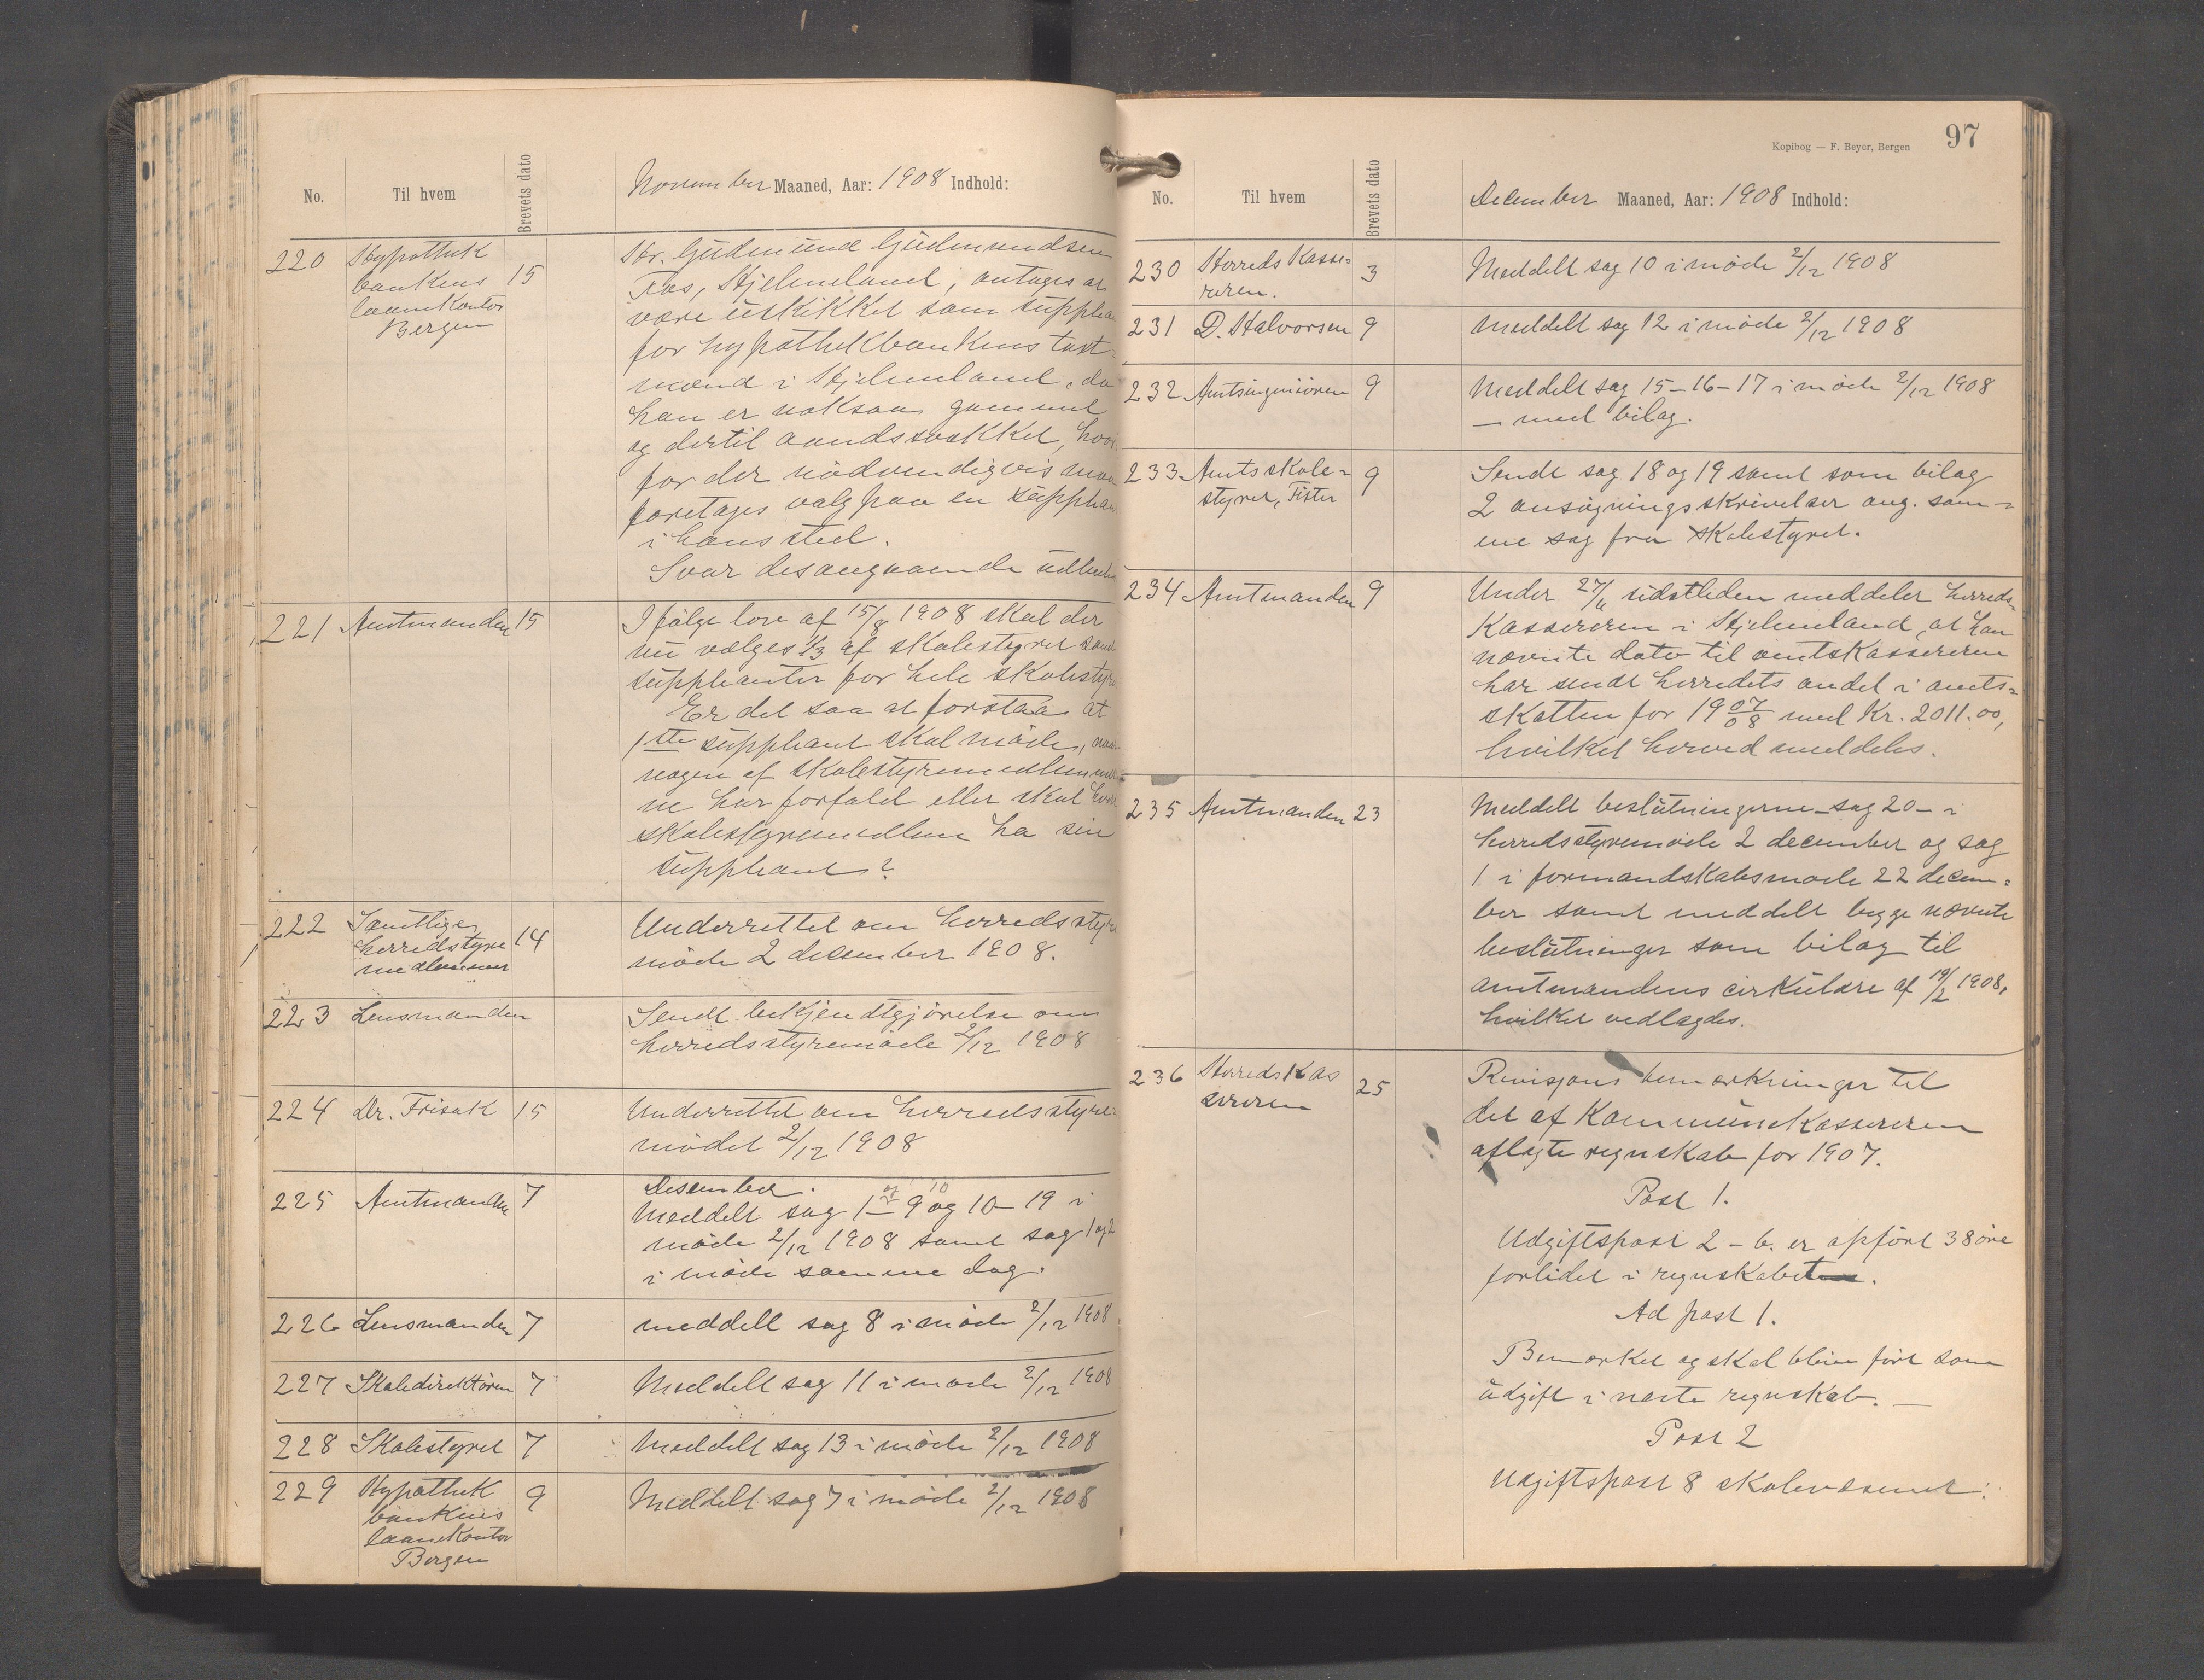 No.
Til hvem
Brevets dato
November Maaned, Aar: 1908 Indhold:
220
Hypothek
bankens
laanekontor
Bergen
15
Hr. Gudmund Gudmundsen
Fos, Hjelmeland, antages at
være uskikket som supplea
for hypothekbankens taxt-
mænd i Hjelmeland, da
han er noksaa gammel
og dertil aandssvækket, hvor
for der nødvendigvis maa
foretages valg paa en supplea
i hans sted.
Svar desangaaende udbedes
221
Amtmanden
15
Ifølge lov af 15/8 1908 skal der
nu vælges 1/3 af skolestyret samt
suppleanter for hele skolesty
Er det saa at forstaa at
1ste suppleant skal møde, naar
nogen af skolestyremedlemmer-
ne har forfald eller skal hver
skolestyremedlem ha sin
suppleant?
222
Samtlige
herredstyre
medlemmer
14
Underrettet om herredsstyre
møde 2 december 1908.
223
Lensmanden
Sendt bekjendtgjørelse om
herredsstyremøde 2/12 1908
224
Dr. Frisak
15
Underrettet om herredsstyre-
mødet 2/12 1908
225
Amtmanden
7
Desember.
Meddelt sag 1 og 9 og 10 10-19 i
møde 2/12 1908 samt sag 1 og 2
i møde samme dag.
226
Lensmanden
7
meddelt sag 8 i møde 2/12 1908
227
Skoledirektøren
7
Meddelt sag 11 i møde 2/12 1908
228
Skolestyret
7
Meddelt sag 13 i møde 2/12 1908
229
Hypothek
bankens
laanekontor
Bergen
9
Meddelt sag 7 i møde 2/12 1908
Kopibog — F. Beyer, Bergen
97
No.
Til hvem
Brevets dato
December Maaned, Aar: 1908 Indhold:
230
Herredskasse-
reren.
3
Meddelt sag 10 i møde 2/12 1908
231
D. Halvorsen
9
Meddelt sag 12 i møde 2/12 1908
232
Amtsingeniøren
9
Meddelt sag 15-16-17 i møde 2/12 1908
— med bilag.
233
Amtsskole-
styret, Fister
9
Sendt sag 18 og 19 samt som bilag
2 ansøgningsskrivelser ang. sam-
me sag fra skolestyret.
234
Amtmanden
9
Under 27/11 sidstleden meddeler herreds-
kassereren i Hjelmeland, at han
nævnte dato til amtskassereren
har sendt herredets andel i amts-
skatten for 1907/08 med Kr. 2011.00,
hvilket herved meddeles.
235
Amtmanden
23
Meddelt beslutningerne – sag 20 – i
herredsstyremøde 2 december og sag
1 i formandskabsmøde 22 decem-
ber samt meddelt begge nævnte
beslutninger som bilag til
amtmandens cirkulære af 19/2 1908,
hvilket vedlagdes.
236
Herredskas
sereren
25
Revisjons bemærkninger til
det af Kommunekassereren
aflagte regnskab for 1907.
Post 1.
Udgiftspost 2 – b. er opført 38 øre
forlidet i regnskabet.
Ad post 1.
Bemærket og skal blive ført som
udgift i næste regnskab. —
Post 2
Udgiftspost 8 skolevæsenet: